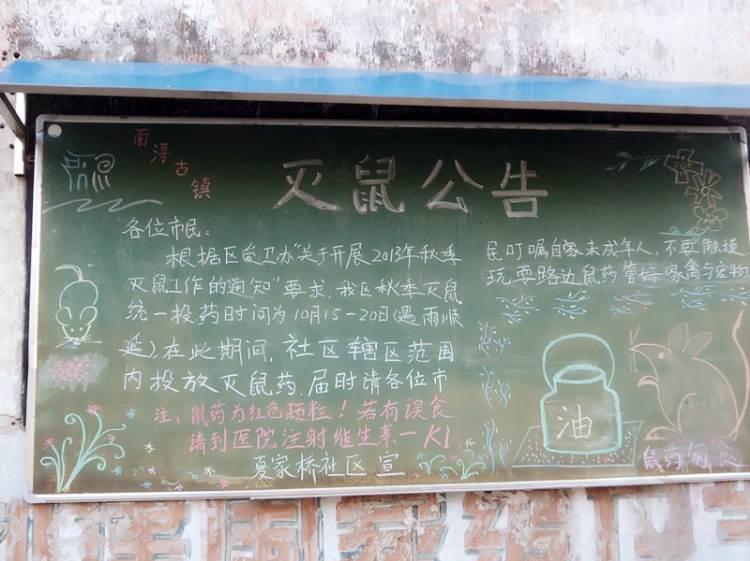 南浔古镇
灭鼠公告
各位市民:
根据区爱卫办"关于开展2013年秋季
灭鼠工作的通知"要求,我区秋季灭鼠
统一投药时间为10月15-20日(遇雨顺
延)在此期间,社区辖区范围
内投放灭鼠药,届时请各位市
民叮嘱自家未成年人,不要触摸
玩耍路边鼠药管好家禽与宠物
注:鼠药为红色颗粒!若有误食
请到医院注射维生素—K1
夏家桥社区宣
油
鼠药勿食